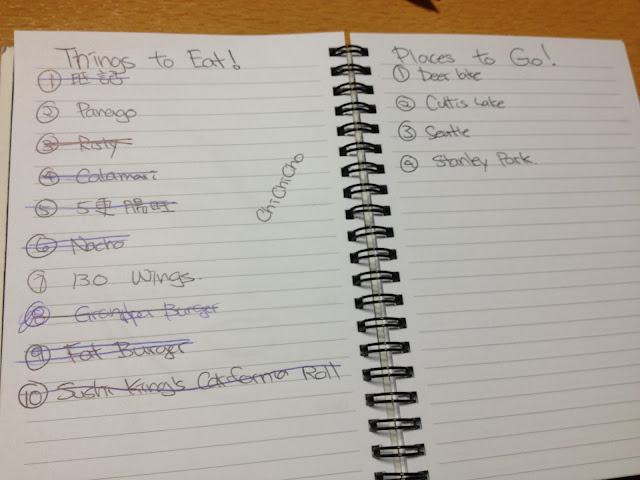 Things to Eat!
① 旺記
② Panago
③ Risty
④ Calamari
⑤ 5更腸旺
⑥ Nacho
⑦ 130 Wings.
⑧ Grandpa Burger
⑨ Fat Burger
⑩ Sushi King's California Roll
ChiChiCho
Places to Go!
① Deer lake
② Cultis Lake
③ Seattle
④ Stanley Park.